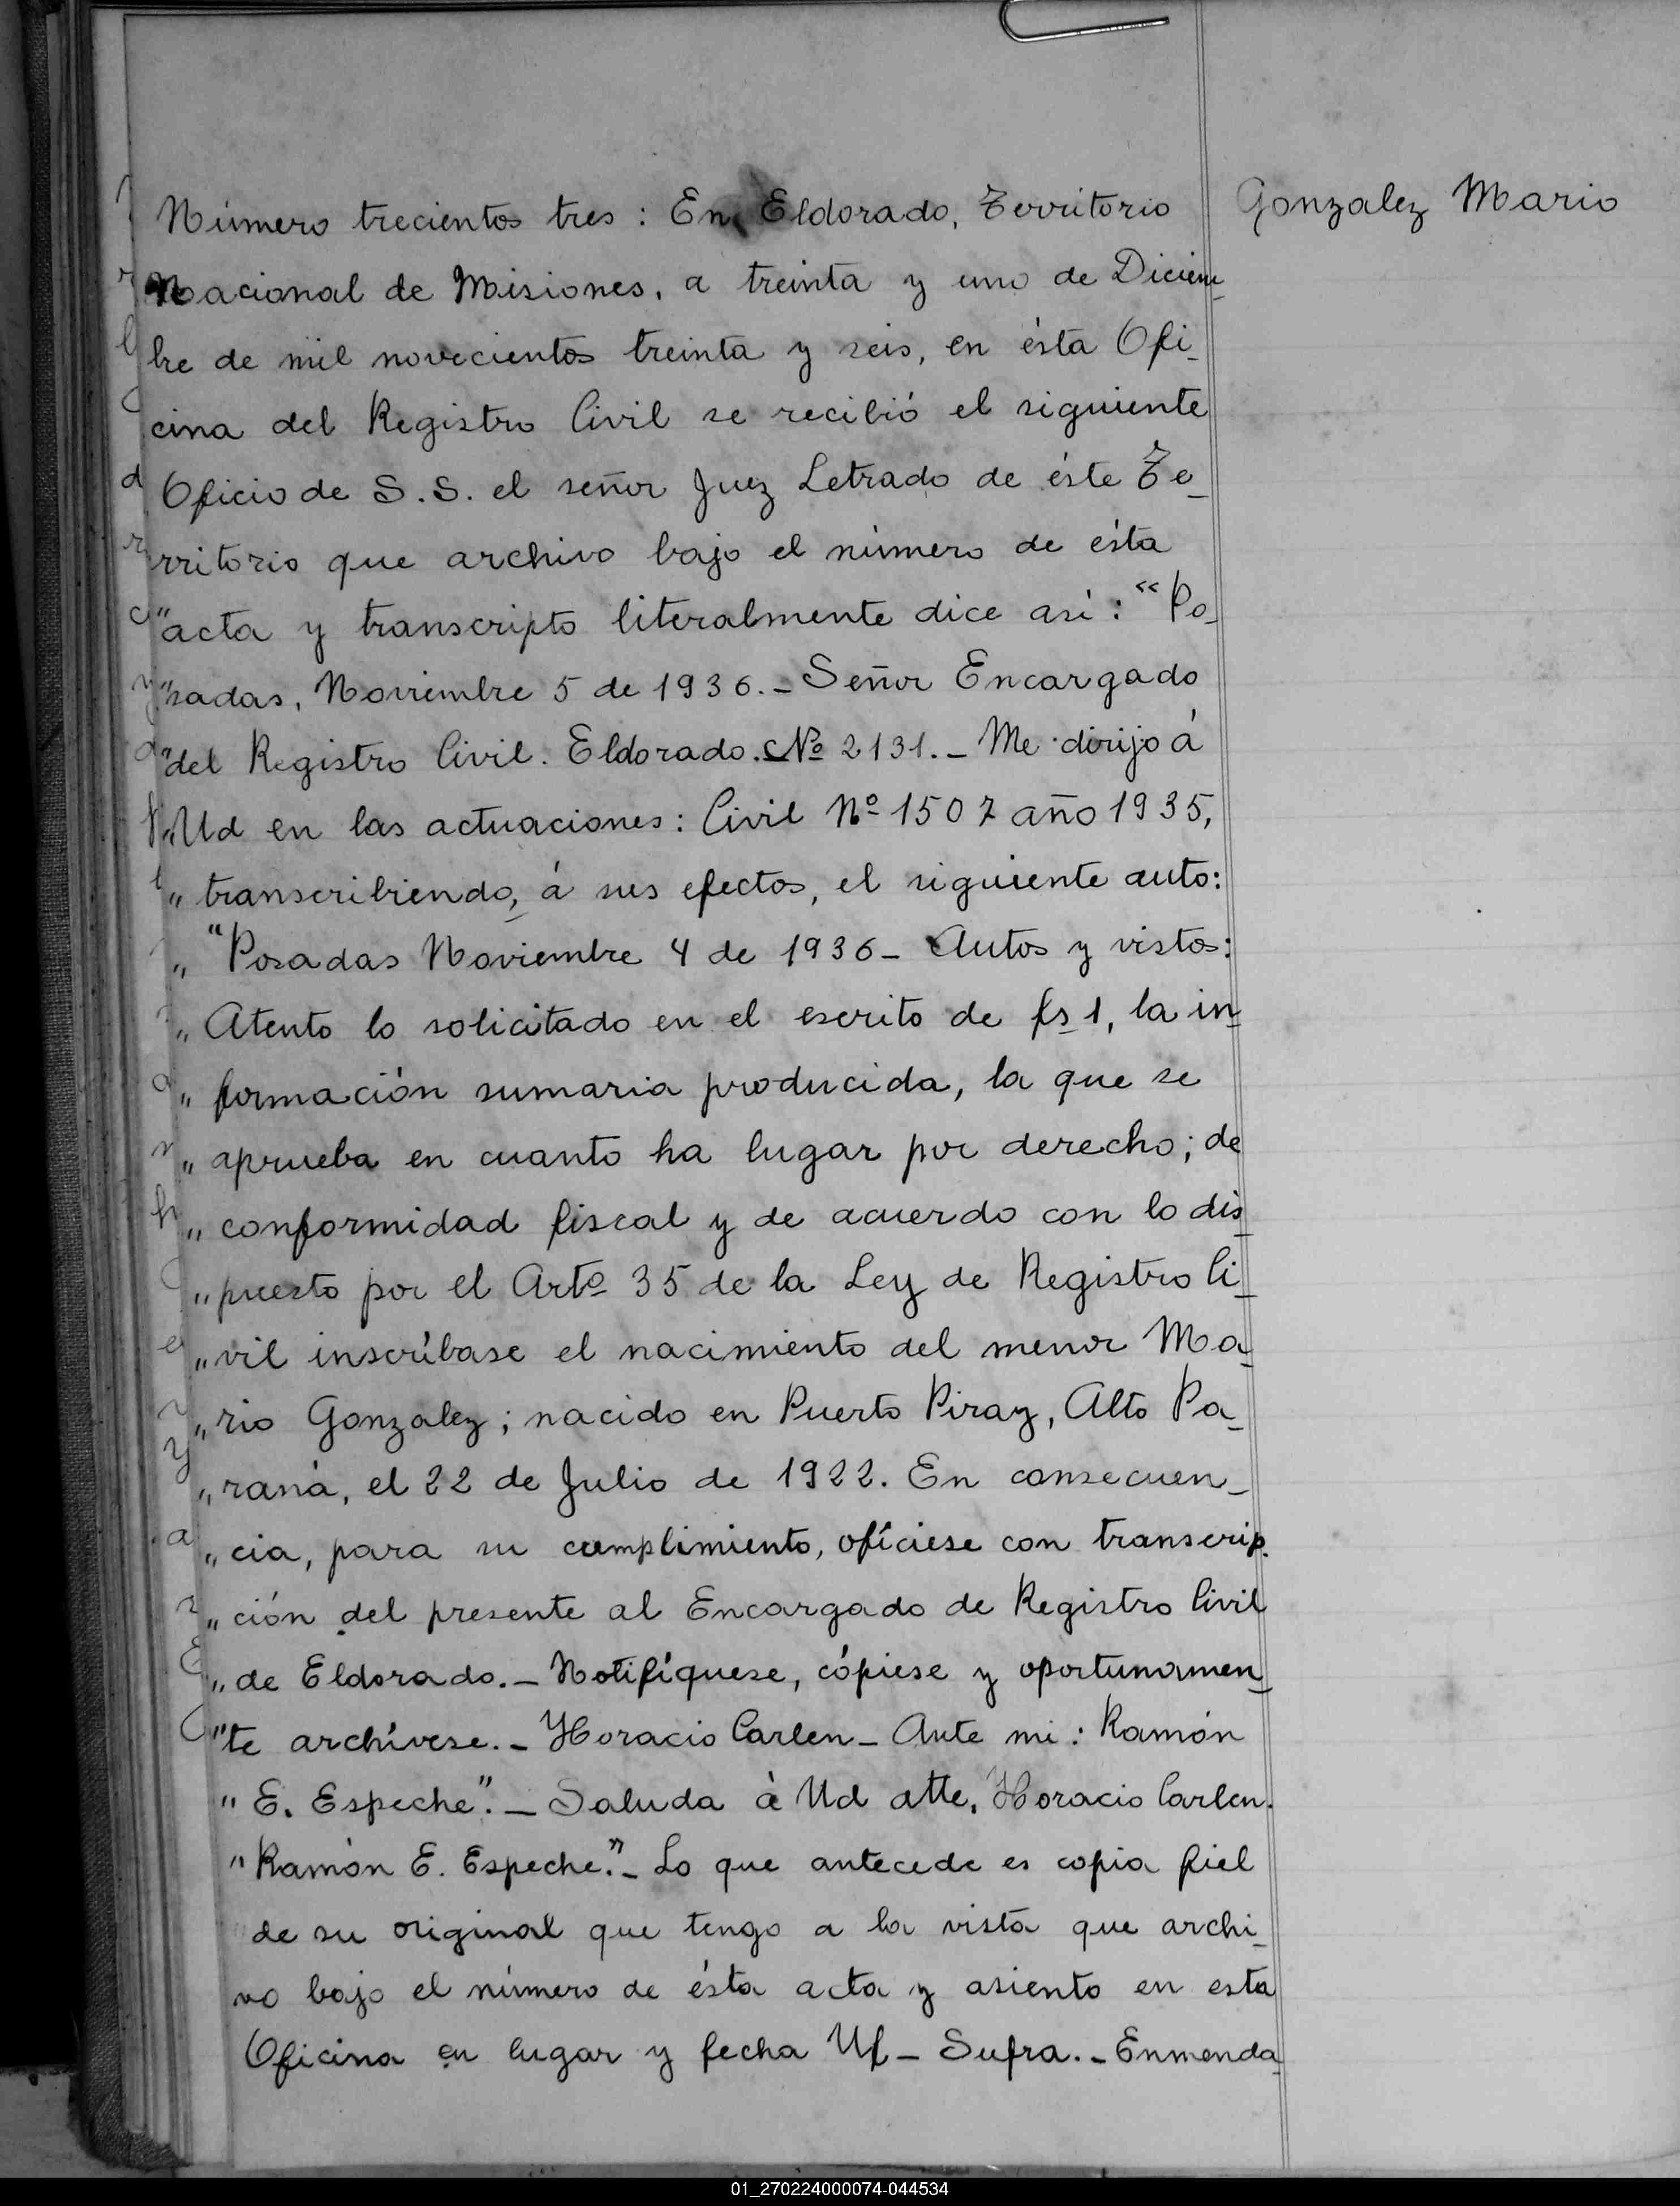 Gonzalez Mario
Número trecientos tres : En Eldorado, Territorio
Nacional de Misiones, a treinta y uno de Diciem_
bre de mil novecientos treinta y seis, en ésta Ofi_
cina del Registro Civil se recibió el siguiente
Oficio de S.S. el señor Juez Letrado de éste Te_
rritorio que archivo bajo el número de ésta
"acta y transcripto literalmente dice así : "Po_
"sadas, Noviembre 5 de 1936._ Señor Encargado
"del Registro Civil. Eldorado. Nº 2131._ Me dirijo á
"Ud en las actuaciones : Civil Nº 1507 año 1935,
" transcribiendo, á sus efectos, el siguiente auto:
" "Posadas Noviembre 4 de 1936_ Autos y vistos:
" Atento lo solicitado en el escrito de fs 1, la in_
" formación sumaria producida, la que se
" aprueba en cuanto ha lugar por derecho; de
" conformidad fiscal y de acuerdo con lo dis_
" puesto por el Artº 35 de la Ley de Registro Ci_
" vil inscríbase el nacimiento del menor Ma_
" rio Gonzalez; nacido en Puerto Piray, Alto Pa_
" raná, el 22 de Julio de 1922. En consecuen_
" cia, para su cumplimiento, ofíciese con transcrip_
" ción del presente al Encargado de Registro Civil
" de Eldorado._ Notifíquese, cópiese y oportunamen_
" te archívese._ Horacio Carlen_ Ante mi : Ramón
" E. Espeche"._ Saluda á Ud atte. Horacio Carlen.
" Ramón E. Espeche."_ Lo que antecede es copia fiel
de su original que tengo a la vista que archi_
vo bajo el número de ésta acta y asiento en esta
Oficina en lugar y fecha Ut_ Supra._ Enmenda_
01_270224000074-044534